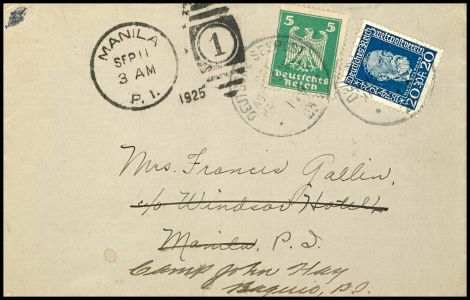 MANILA
SEP 11
3 AM
P. I.
1925
1
5 5
Deutsches
Reich
Weltpostverein
Deutsches Reich
20 PF 20
DEUTSCHE SEEPOST
Mrs. Francis Gallin,
c/o Windsor Hotel,
Manila, P. I.
Camp John Hay
Baguio, P.I.